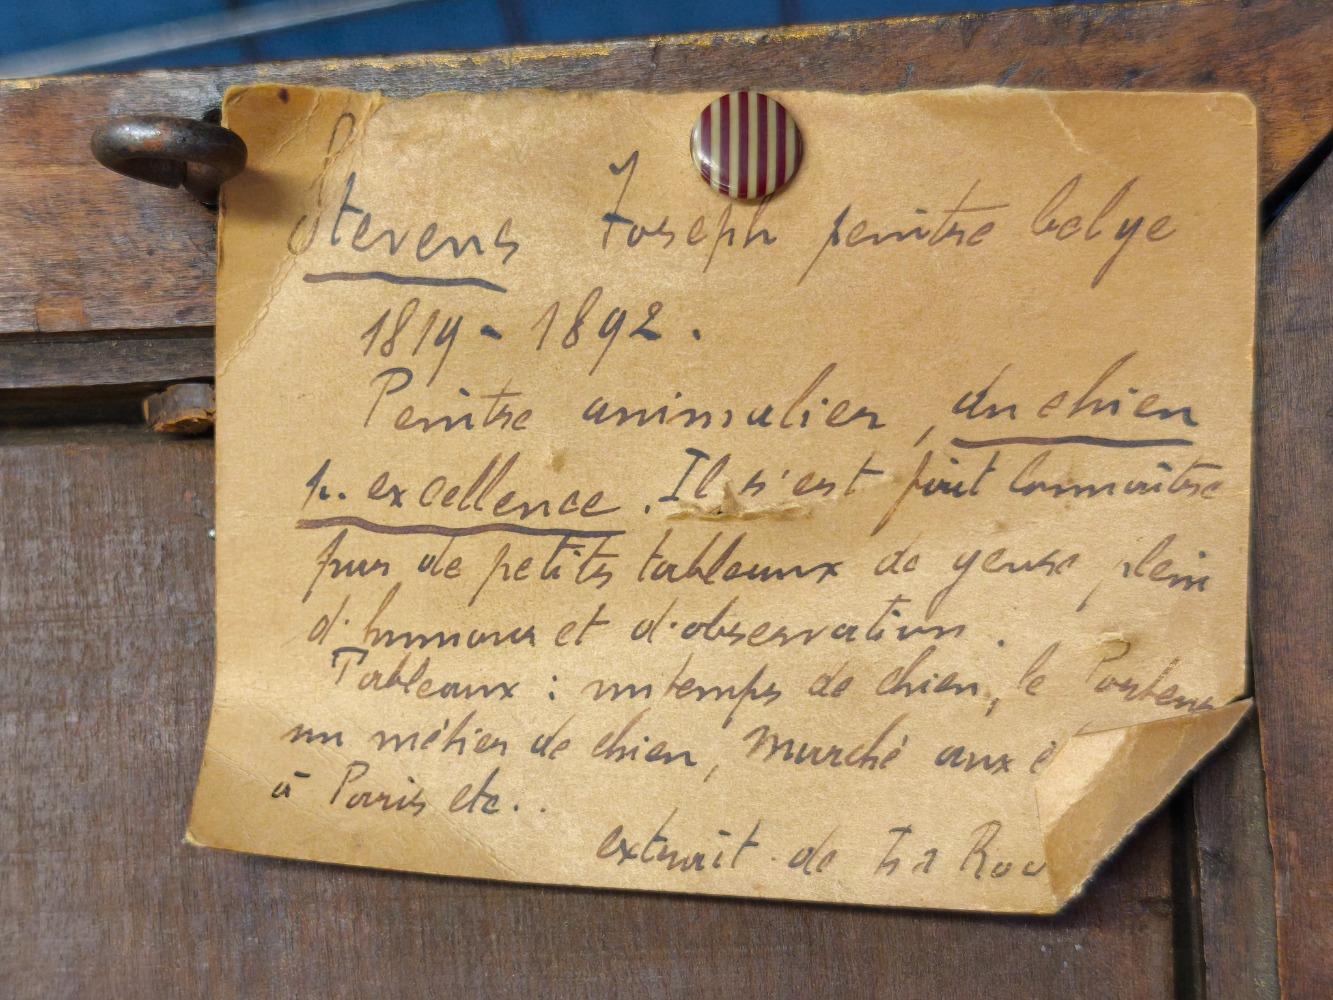 Stevens Joseph peintre belge
1819 - 1892.
Peintre animalier, du chien
p. excellence. Il s'est fait connaître
par de petits tableaux de genre plein
d'humour et d'observation.
Tableaux : un temps de chien, le
un métier de chien, marché aux
à Paris etc..
extrait de